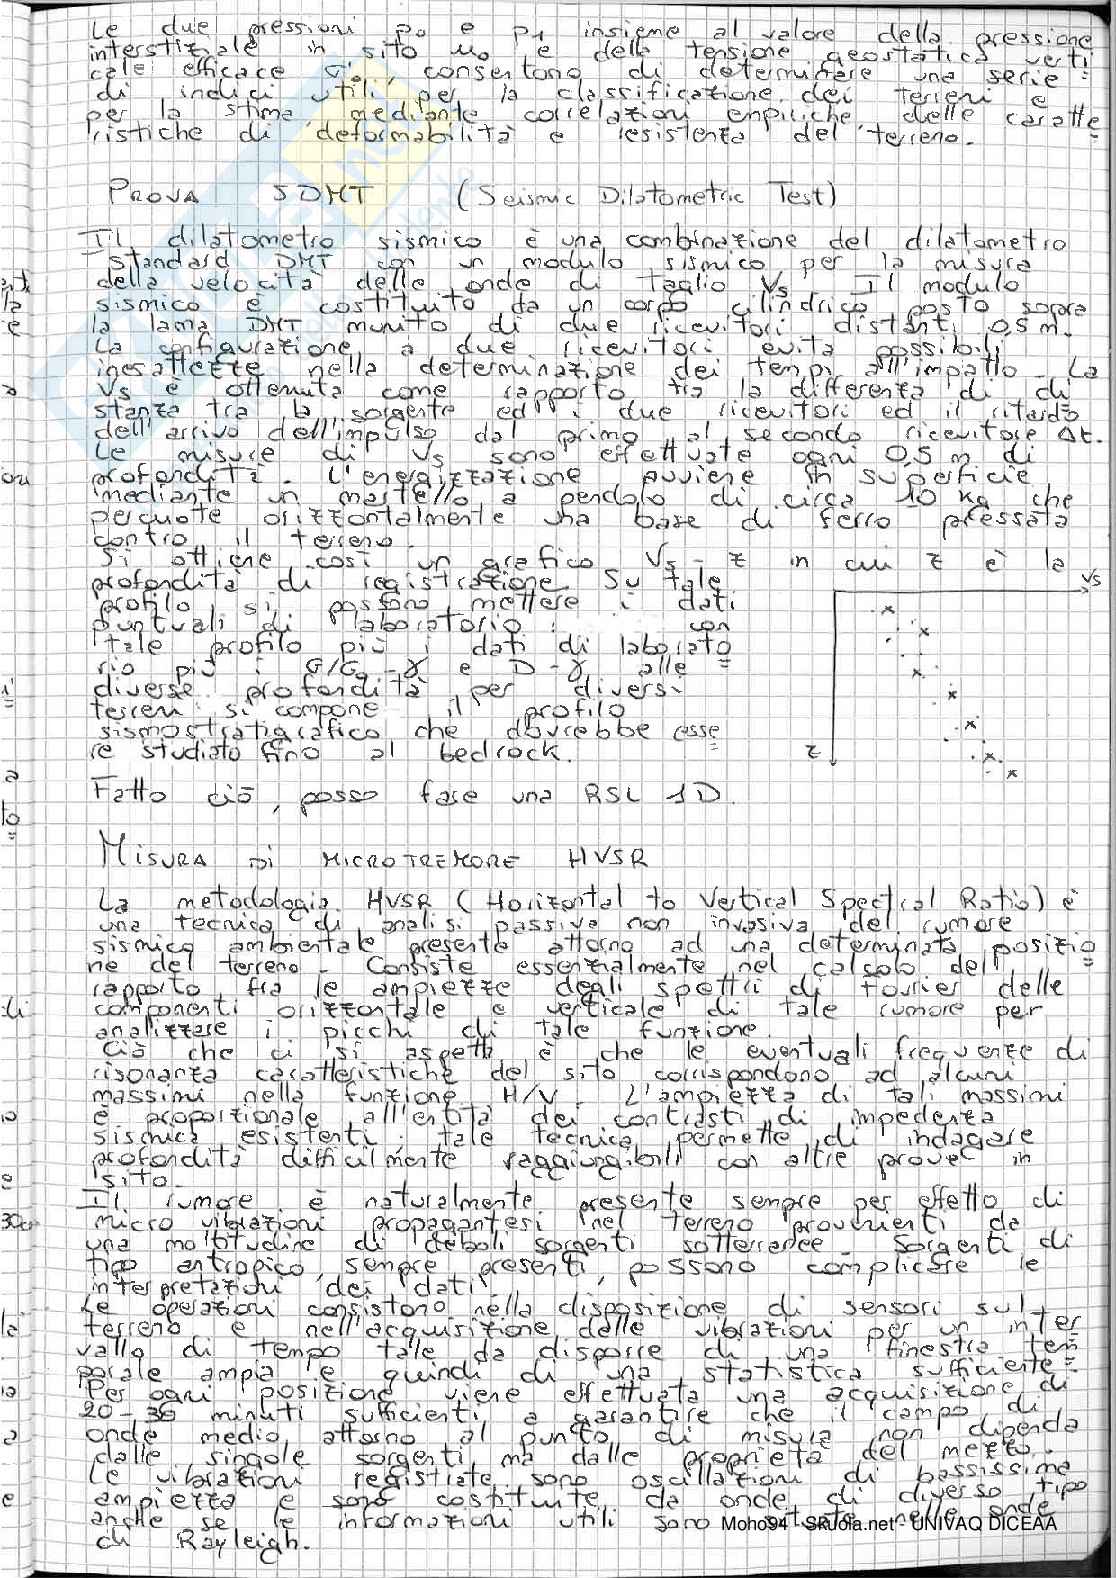 Le due pressioni p0 e p1 insieme al valore della pressione
interstiziale in sito u0 e della tensione geostatica verti
cale efficace σ'v0 consentono di determinare una serie
di indici utili per la classificazione dei terreni e
per la stima mediante correlazioni empiriche delle caratte
ristiche di deformabilità e resistenza del terreno.
PROVA SDMT (Seismic Dilatometric Test)
Il dilatometro sismico è una combinazione del dilatometro
standard DMT con un modulo sismico per la misura
della velocità delle onde di taglio Vs. Il modulo
sismico è costituito da un corpo cilindrico posto sopra
la lama DMT munito di due ricevitori distanti 0,5 m.
La configurazione a due ricevitori evita possibili
inesattezze nella determinazione dei tempi all'impatto. La
Vs è ottenuta come rapporto tra la differenza di di
stanza tra la sorgente ed i due ricevitori ed il ritardo
dell'arrivo dell'impulso dal primo al secondo ricevitore Δt.
Le misure di Vs sono effettuate ogni 0,5 m di
profondità. L'energizzazione avviene in superficie
mediante un martello a pendolo di circa 10 kg che
percuote orizzontalmente una base di ferro pressata
contro il terreno.
Si ottiene così un grafico Vs - z in cui z è la
profondità di registrazione. Su tale
profilo si possono mettere i dati
puntuali di laboratorio: con
tale profilo più i dati di laborato
rio più i G/G0 - γ e D - γ alle
diverse profondità per diversi
terreni si compone il profilo
sismostratigrafico che dovrebbe esse
re studiato fino al bedrock.
Vs
z
Fatto ciò, posso fare una RSL 1D.
MISURA DI MICROTREMORE HVSR
La metodologia HVSR (Horizontal to Vertical Spectral Ratio) è
una tecnica di analisi passiva non invasiva del rumore
sismico ambientale presente attorno ad una determinata posizio
ne del terreno. Consiste essenzialmente nel calcolo del
rapporto fra le ampiezze degli spettri di Fourier delle
componenti orizzontale e verticale di tale rumore per
analizzare i picchi di tale funzione.
Ciò che ci si aspetta è che le eventuali frequenze di
risonanza caratteristiche del sito corrispondono ad alcuni
massimi nella funzione H/V. L'ampiezza di tali massimi
è proporzionale all'entità dei contrasti di impedenza
sismica esistenti: tale tecnica permette di indagare
profondità difficilmente raggiungibili con altre prove in
sito.
Il rumore è naturalmente presente sempre per effetto di
micro vibrazioni propagantesi nel terreno provenienti da
una moltitudine di deboli sorgenti sotterranee. Sorgenti di
tipo antropico, sempre presenti, possono complicare le
interpretazioni dei dati.
Le operazioni consistono nella disposizione di sensori sul
terreno e nell'acquisizione delle vibrazioni per un inter
vallo di tempo tale da disporre di una finestra tem
porale ampia e quindi di una statistica sufficiente.
Per ogni posizione viene effettuata una acquisizione di
20-30 minuti sufficienti a garantire che il campo di
onde medio attorno al punto di misura non dipenda
dalle singole sorgenti ma dalle proprietà del mezzo.
Le vibrazioni registrate sono oscillazioni di bassissima
ampiezza e sono costituite da onde di diverso tipo
anche se le informazioni utili sono situate nelle onde
di Rayleigh.
Moho94 - SKuola.net - UNIVAQ DICEAA